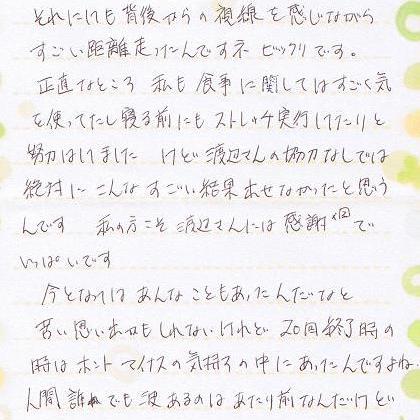 それにしても背後からの視線を感じながら
すごい距離走ったんですネ ビックリです。
正直なところ 私も食事に関してはすごく気
を使ってたし寝る前にもストレッチ実行してたりと
努力はしました けど渡辺さんの協力なしでは
絶対にこんなすごい結果出せなかったと思う
んです 私の方こそ渡辺さんには感謝で
いっぱいです
今となっては あんなこともあったんだなと
苦い思い出かもしれないけれど 20回終了時の
時はホント マイナスの気持ちの中にあったんですよね
人間誰れでも波あるのはあたり前なんだけど